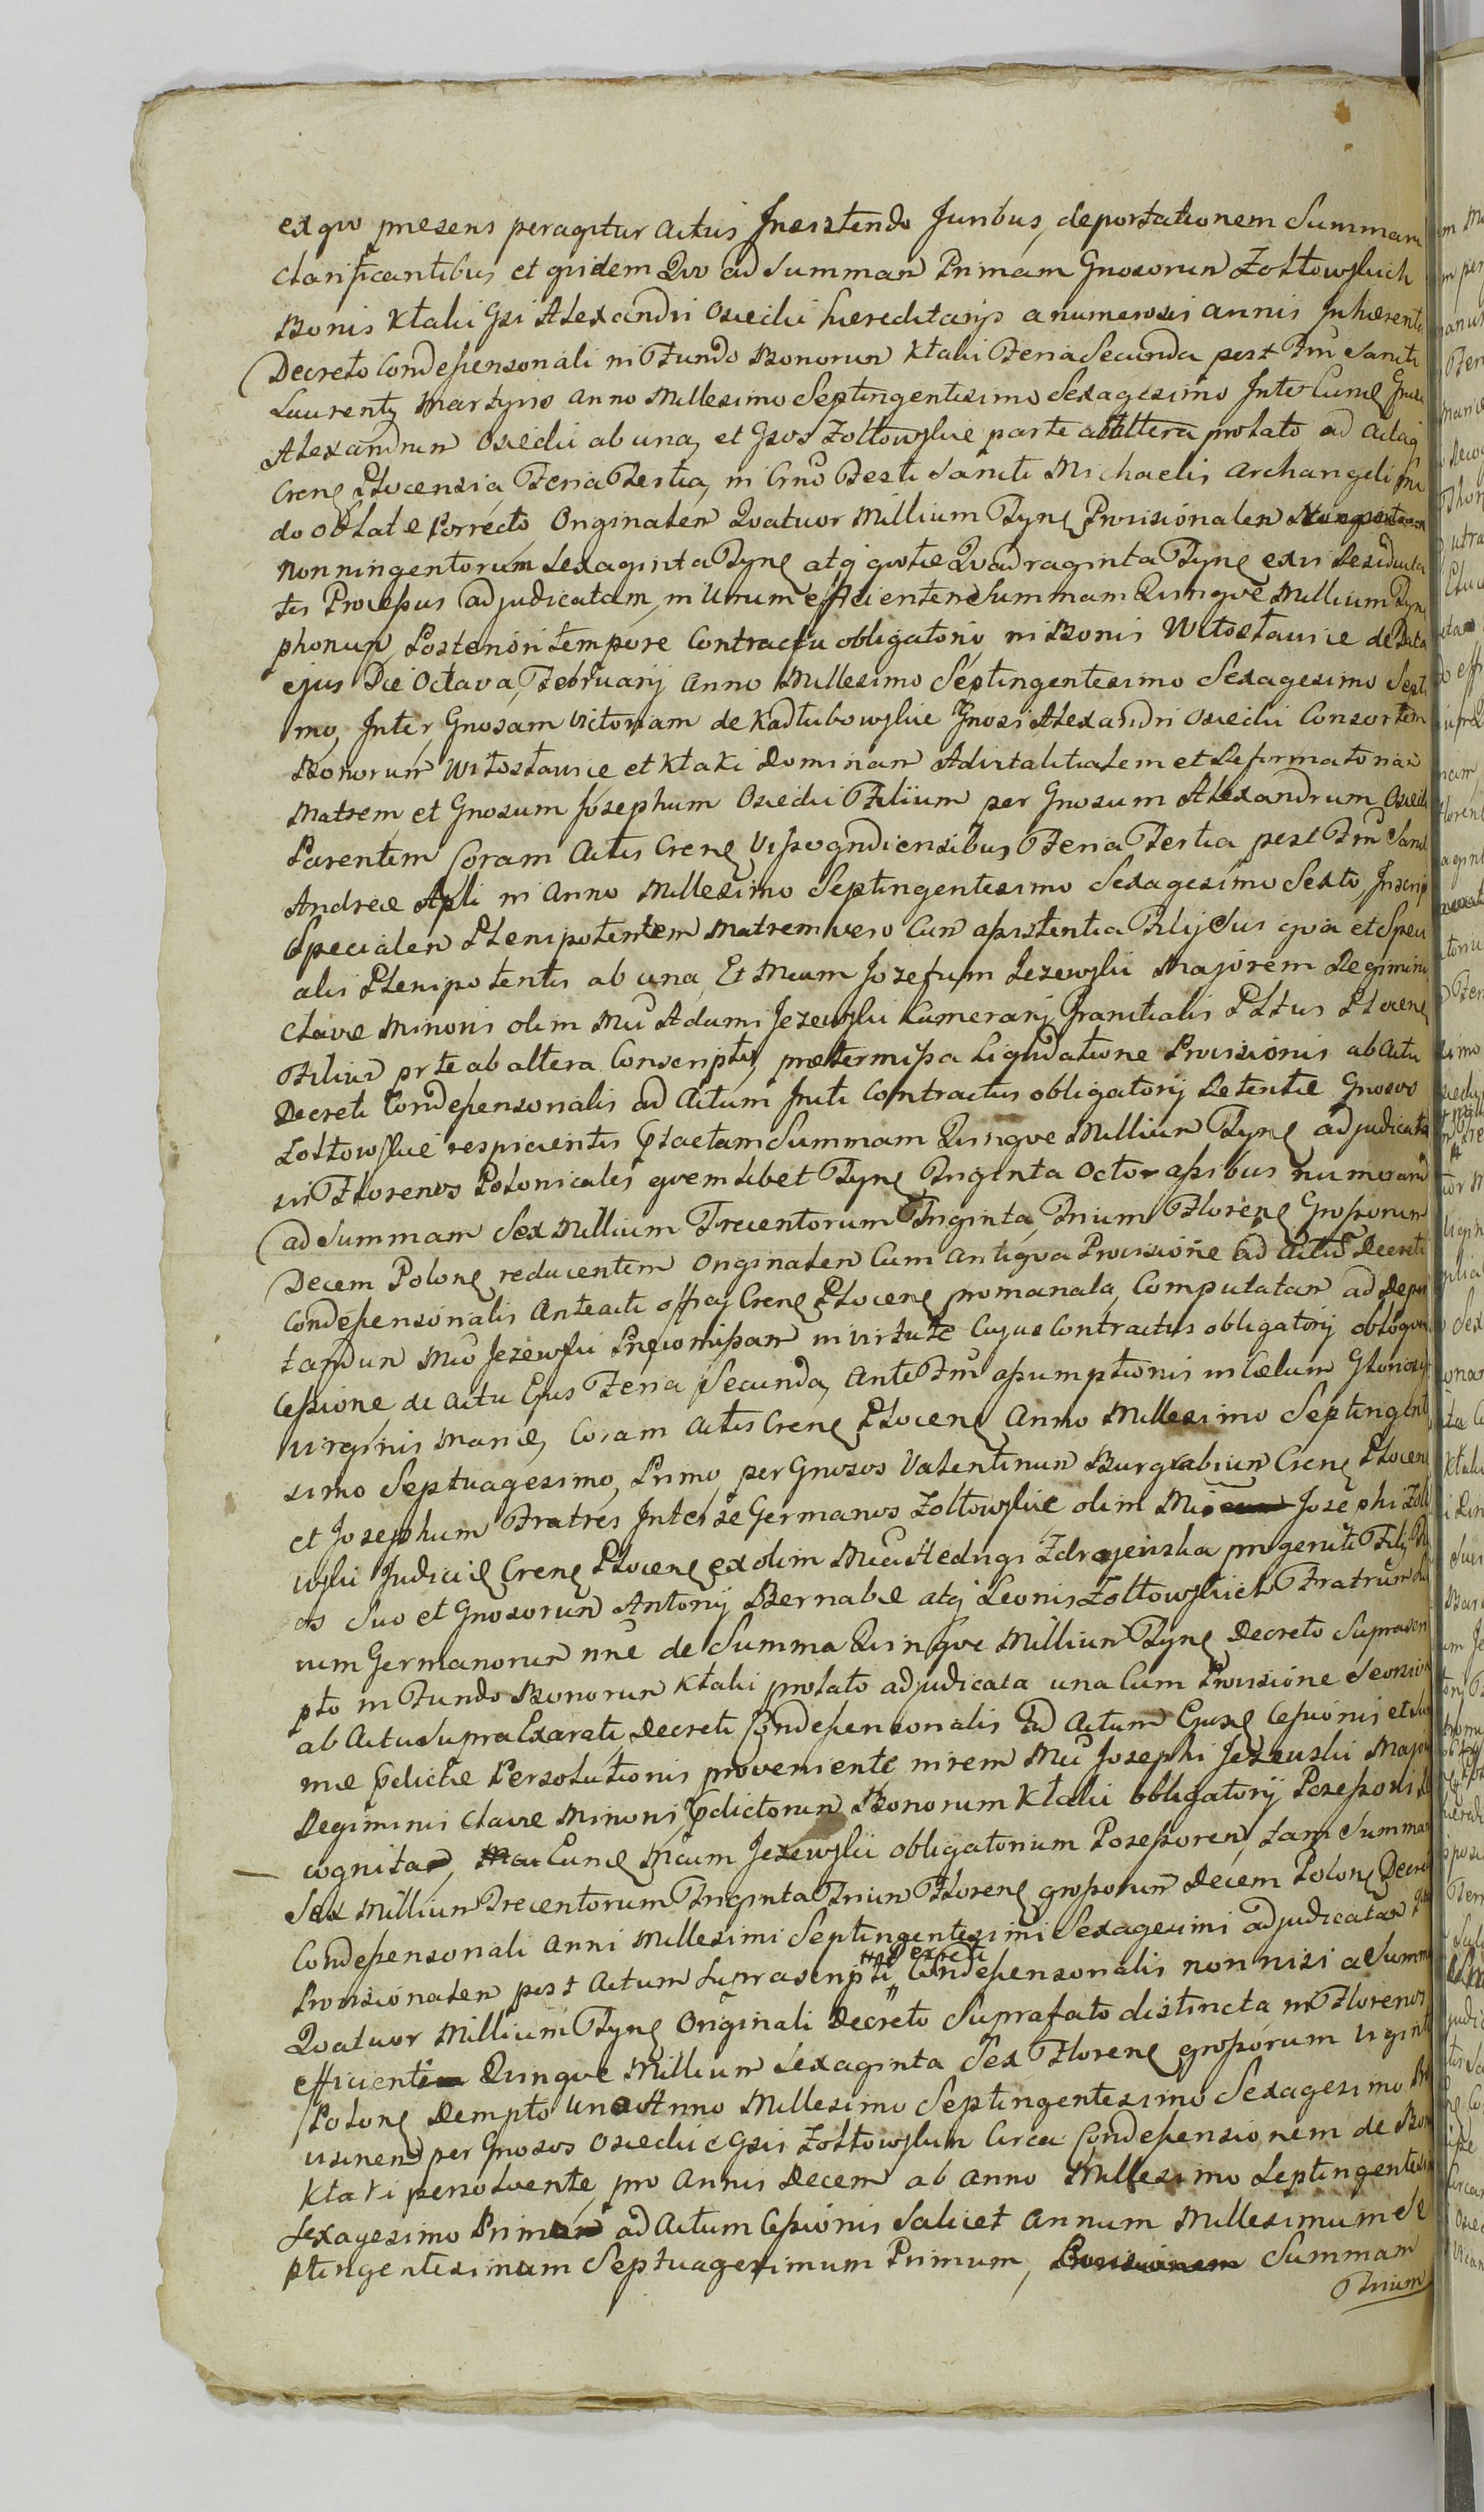 ex quo presens peragitur actus Insistendo Juribus, deportationem Summam
clarificantibus et quidem Quo ad Summam Primam Gnosorum Żołtowskich
Bonis Kłaki Gsi Alexandri Osiecki hæreditarijs a numerosis annis Inhærente
Decreto Condescensionali in Fundo Bonorum Kłaki Feria Secunda post Ftm Sancti
Laurentij Martyris anno Millesimo Septingentesimo Sexagesimo Inter eund Gnosum
Alexandrum Osiecki ab una, et Gsos Żołtowskie parte ab altera prolato ad acta
Crens Plocensia, Feria Tertia, in Crno Festi Sancti Michaelis Archangeli
do oblatæ Porrecto, Originalem Quatuor Millium Tynf Provisionalem
nonningentorum Sexaginta Tynf atq quotæ Quadraginta Tynf
tis Processus adjudicatam, in Unum efficientem Summam Quinque Millium Tyn
phonum, Posteriori tempore Contractu obligatorio, in Bonis Witosławice de Data
ejus Die Octava, Februarij Anno Millesimo Septingentesimo Sexagesimo Septi
mo, Inter Gnosam Victoriam de Kadłubowskie Gnosi Alexandri Osiecki Consortem
Bonorum Witosławice et Kłaki Dominam Advitalitiatem et Reformatoriam
Matrem, et Gnosum Josephum Osiecki Filium per Gnosum Alexandrum Osiecki
Parentem Coram Actis Crens Vissogrodiensibus Feria Tertia post Ftm Sancti
Andreæ Apli in Anno Millesimo Septingentesimo Sexagesimo Sexto, Inscrip
Specialem Plenipotentem Matrem vero Cum assistentia Filij Sui qua et Speci
alis Plenipotentis ab una, Et Mcum Jozefum Jezewski Majorem Regiminis
Clavæ Minoris olim Mci Adami Jezewski Camerarij Granitialis Pltus Plocens
Filium prte ab altera Conscripto, prætermissa Liquidatione Provisionis ab Actu
Decreti Condescensionalis ad Actum Initi Contractus obligatorij Retentæ Gnosos
Żołtowskie respicientis Ptactam Summam Quinque Millium Tynf adjudicata
in Florenos Polonicales quemlibet Tynf Triginta Octo assibus numerand
ad Summam Sex Millium Trecentorum Triginta, Trium Florens Grossorum
Decem Polons reducentem Originalem Cum antiqua Provisione ad Actum Decreti
Condescensionalis Anteacti officij Crens Plocens promanata, Computatam ad Depor
tandum Mco Jezewski in virtute Cujus Contractus obligatorij
Cessione, de actu Ejus Feria Secunda, Ante Ftm assumptionis in Cælum Gloriosæ
Virginis Mariæ, Coram Actis Crens Plocens Anno Millesimo Septingent
simo Septuagesimo, Primo, per Gnosos Valentinum Burgrabium Crens Plocens
et Josephum Fratres Inter se Germanos Żołtowskie olim Mci Josephi Żołto
wski Judicis Crens Plocens ex olim Mca Hedvigi Zdrojewska progeniti Filij
os Suo et Gnosorum Antonij Bernabæ atq Leonis Żołtowskich Fratrum Su
orum Germanorum nne de Summa Quinque Millium Tynf Decreto Suprascri
pto in Fundo Bonorum Kłaki prolato adjudicata una Cum Provisione Seorsim
ab Actu Supra Exarati Decreti Condescensionalis ad Actum Ejusd Cessionis et Sum
mæ Pdictæ Persolutionis proveniente in rem Mci Josephi Jezewski Majoris
Regiminis Clavæ Minoris, Pdictorum Bonorum Kłaki obligatorij Possessoris
cognita, Eund Mcum Jezewski obligatorium Possessorem, tam Summam
Sex Millium Trecentorum Triginta Trium Florens grossorum Decem Polons Decreto
Condescensionali Anni Millesimi Septingentesimi Sexagesimi adjudicatam
Decreti
Provisionalem post Actum Suprascripti Condescensionalis non nisi a Summa
Quatuor Millium Tynf Originali Decreto Suprafato distincta in Florenos
efficiente Quinque Millium Sexaginta Sex Florens grossorum viginti
Polons Dempto Uno Anno Millesimo Septingentesimo Sexagesimo
per Gnosos Osiecki Gsis Żołtowskim Circa Condescensionem de Bonis
Kłaki persolvente, pro Annis Decem ab anno Millesimo Septingentesi
Sexagesimo Primo ad Actum Cessionis Scilicet Annum Millesimum Se
ptingentesimum Septuagesimum Primum, Summam
Trium